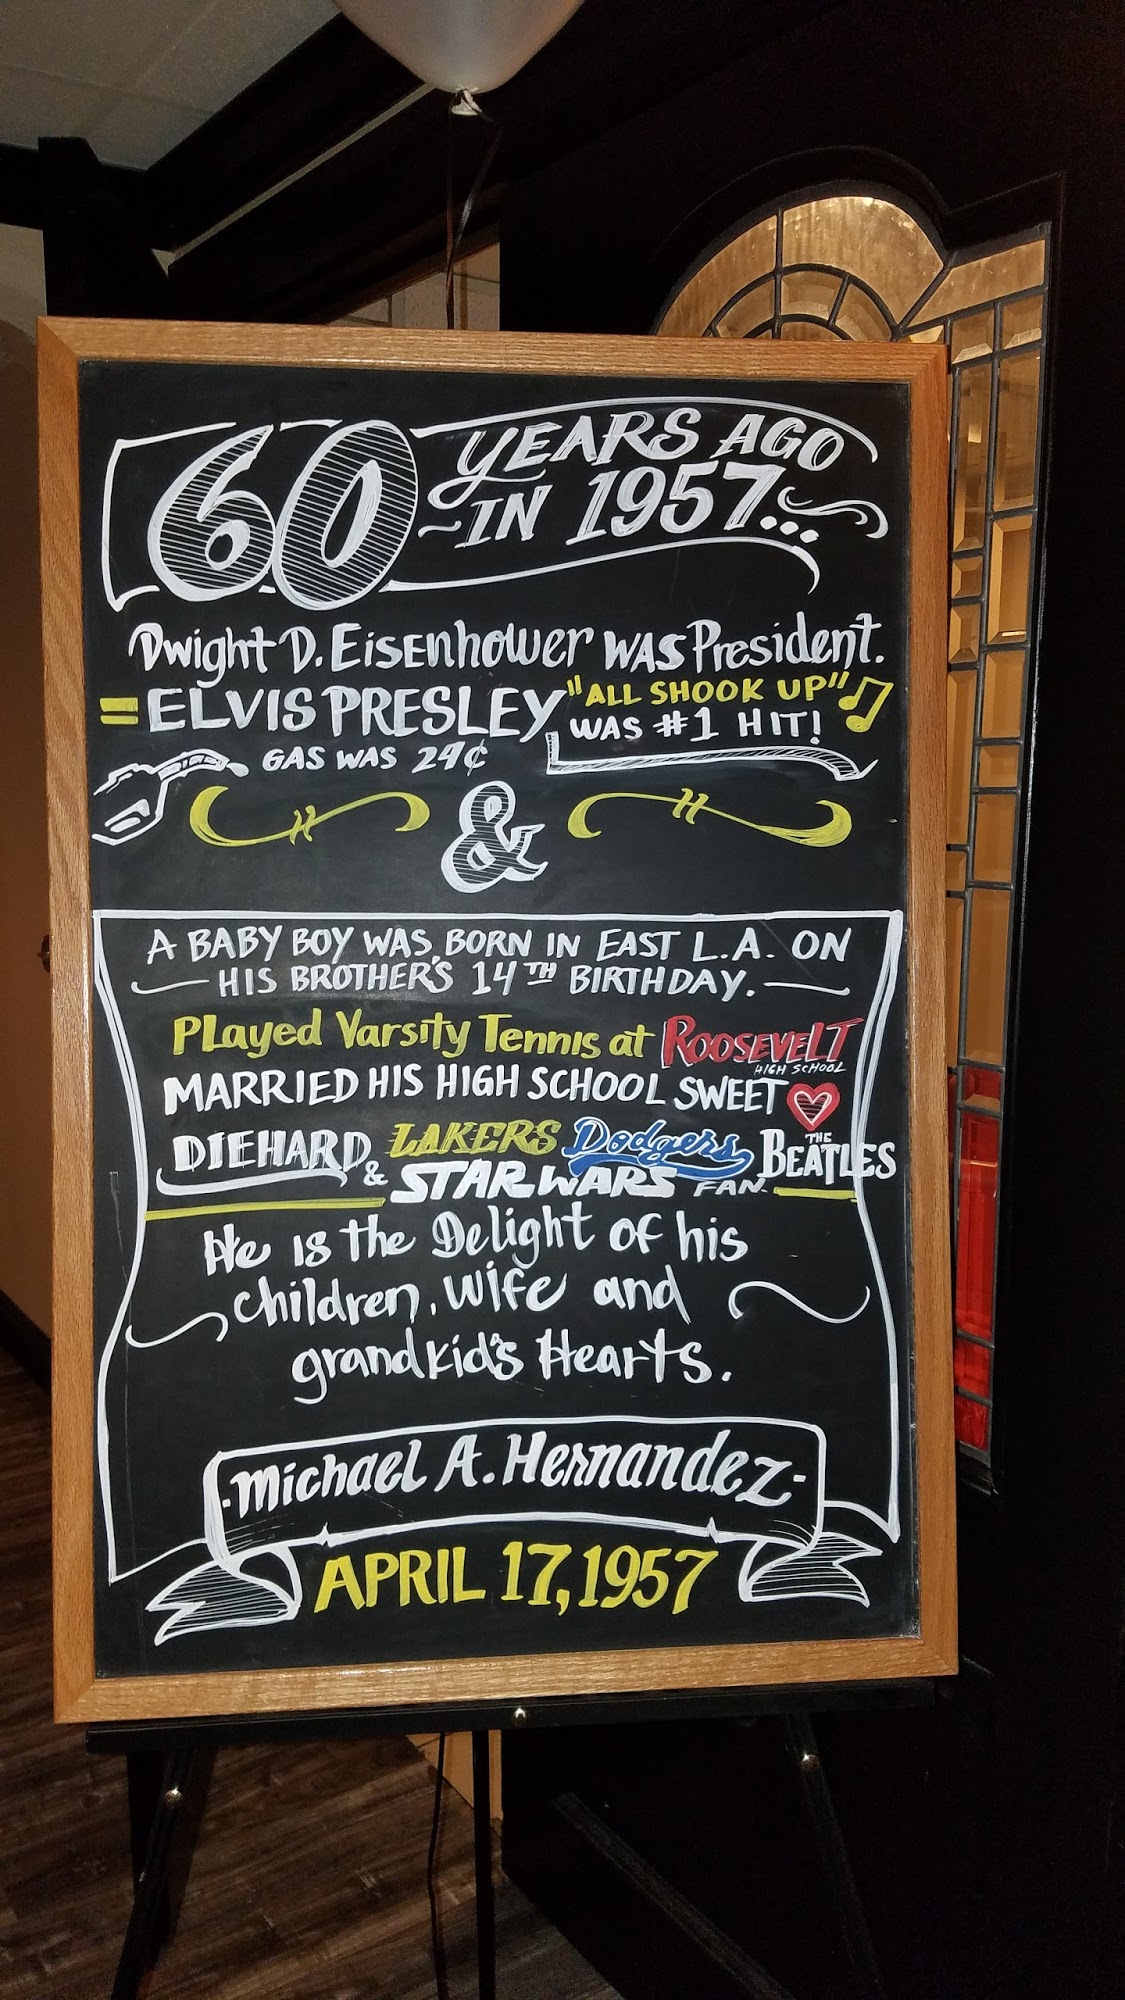 60 YEARS AGO
IN 1957...
Dwight D. Eisenhower was President.
= ELVIS PRESLEY "ALL SHOOK UP"
WAS #1 HIT!
GAS WAS 24¢
&
A BABY BOY WAS BORN IN EAST L.A. ON
HIS BROTHER'S 14TH BIRTHDAY.
Played Varsity Tennis at ROOSEVELT
HIGH SCHOOL
MARRIED HIS HIGH SCHOOL SWEET
DIEHARD LAKERS Dodgers THE BEATLES
& STAR WARS FAN.
He is the Delight of his
children, wife and
grandkid's Hearts.
-Michael A. Hernandez-
APRIL 17, 1957